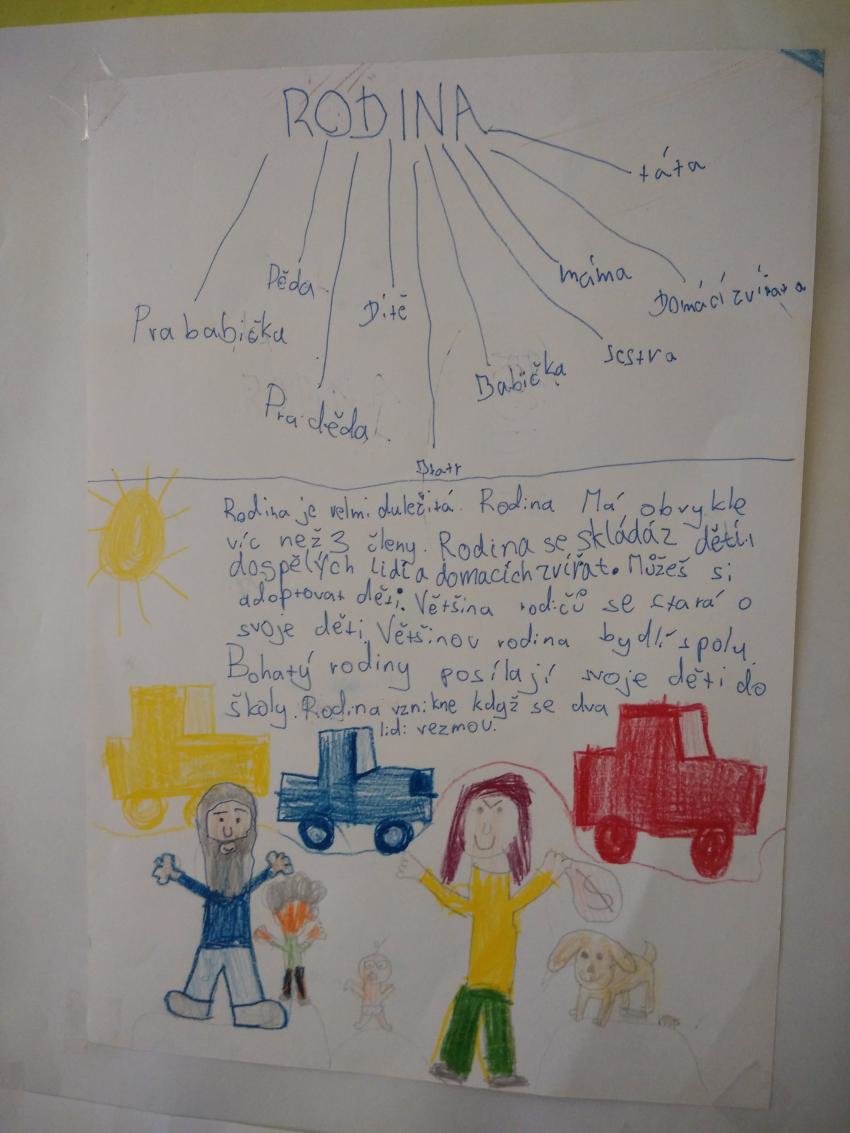 RODINA
táta
Děda
máma
Domácí zvířata
Prababička
Dítě
sestra
Babička
Praděda
Bratr
Rodina je velmi duležitá. Rodina Má obvykle
víc než 3 členy. Rodina se skládá z dětí,
dospělých lidí a domacích zvířat. Můžeš si
adoptovat děti. Většina rodičů se stará o
svoje děti. Většinou rodina bydlí spolu.
Bohatý rodiny posílají svoje děti do
školy. Rodina vznikne když se dva
lidi vezmou.